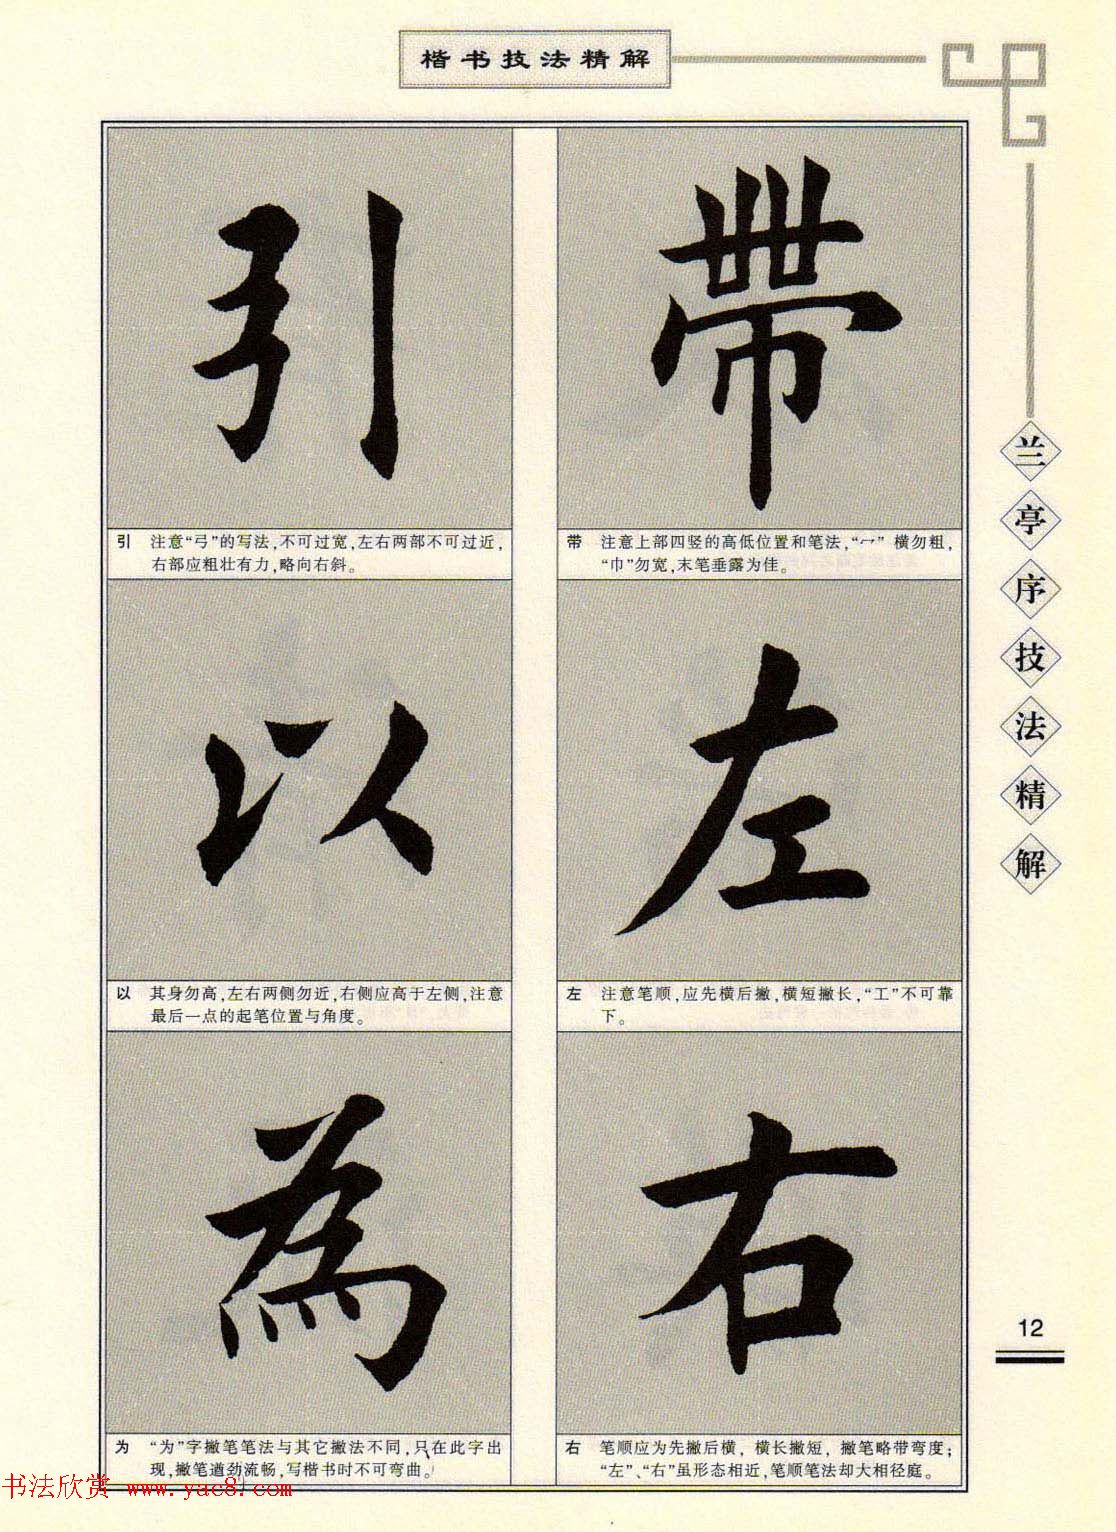 楷书技法精解
兰亭序技法精解
帶
带 注意上部四竖的高低位置和笔法，“冖”横勿粗，
“巾”勿宽，末笔垂露为佳。
左
左 注意笔顺，应先横后撇，横短撇长，“工”不可靠
下。
右
右 笔顺应为先撇后横，横长撇短，撇笔略带弯度；
“左”、“右”虽形态相近，笔顺笔法却大相径庭。
引
引 注意“弓”的写法，不可过宽，左右两部不可过近，
右部应粗壮有力，略向右斜。
以
以 其身勿高，左右两侧勿近，右侧应高于左侧，注意
最后一点的起笔位置与角度。
為
为 “为”字撇笔笔法与其它撇法不同，只在此字出
现，撇笔遒劲流畅，写楷书时不可弯曲。
12
书法欣赏 www.yac8.com